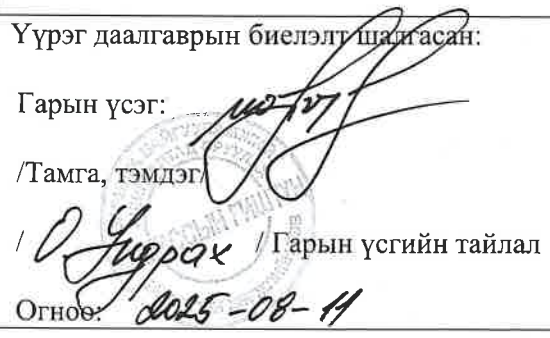 Үүрэг даалгаврын биелэлт шалгасан:
Гарын үсэг:
/Тамга, тэмдэг/
/ О. Ундрах / Гарын үсгийн тайлал
Огноо: 2025-08-11